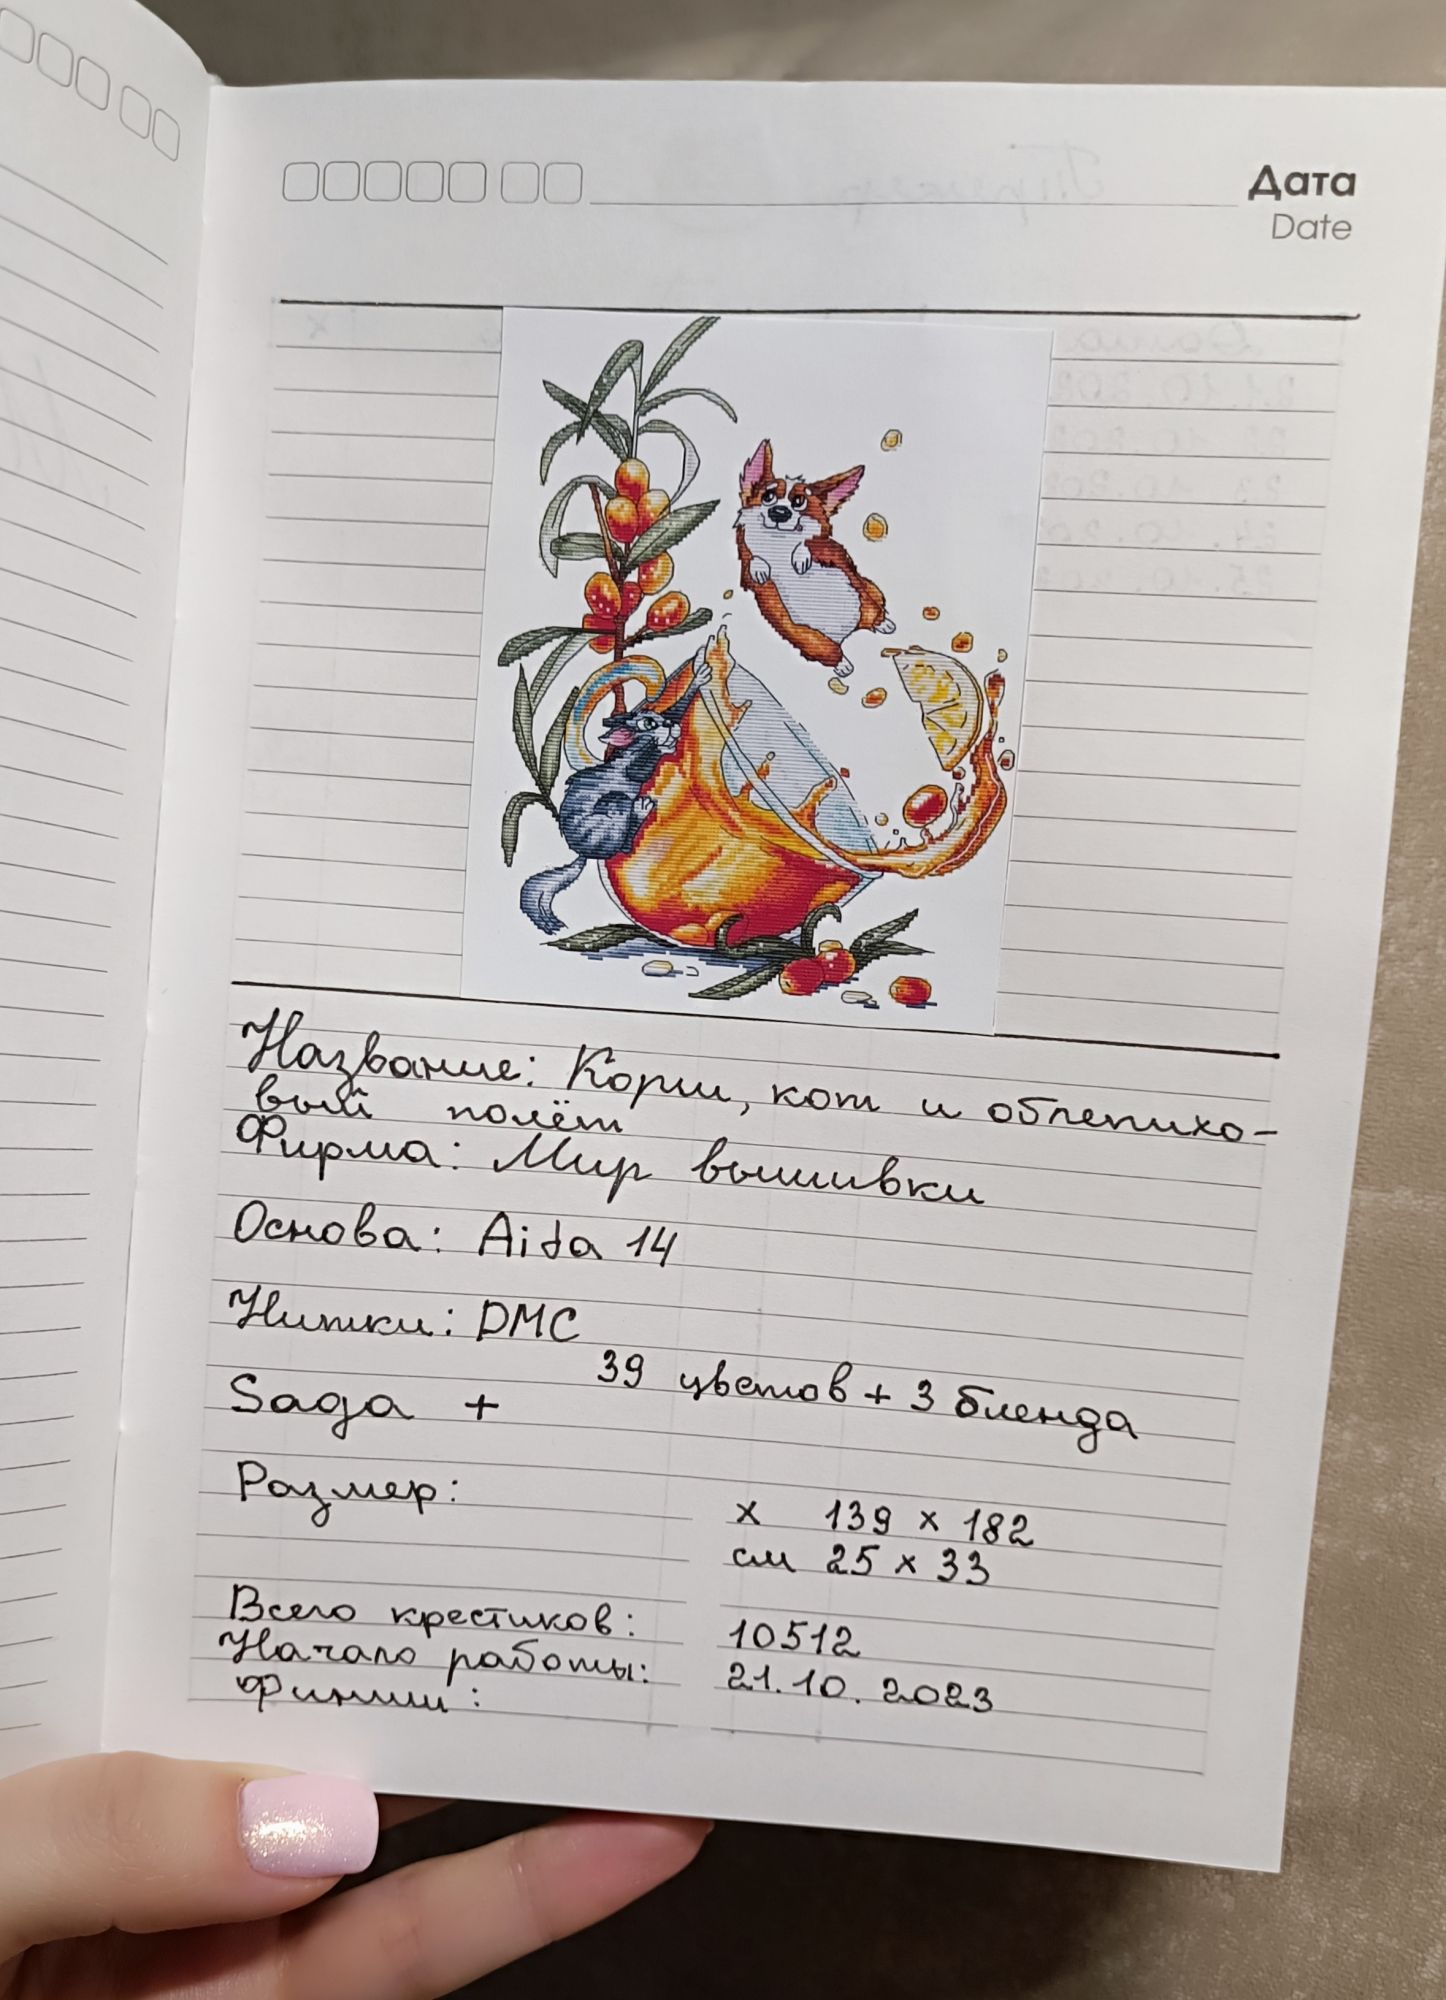 Дата
Date
Название: Корги, кот и облепихо-
вый полёт
Фирма: Мир вышивки
Основа: Aida 14
Нитки: DMC
39 цветов + 3 бленда
Saga +
Размер:
х 139 х 182
см 25 х 33
Всего крестиков: 10512
Начало работы: 21.10.2023
Финиш: